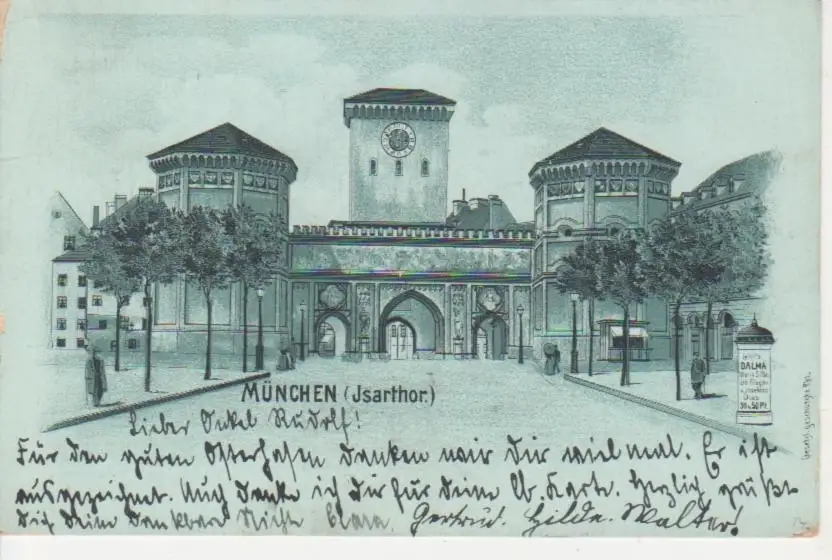 MÜNCHEN (Jsarthor.)
DALMA
Lieber Onkel Rudolf!
Für den guten Osterhasen danken wir Dir vielmal. Er ist
ausgezeichnet. Auch danke ich Dir für Deine lb. Karte. Herzlich grüßt
Dich Deine dankbare Nichte Clara. Gertrud. Hilda. Walter!